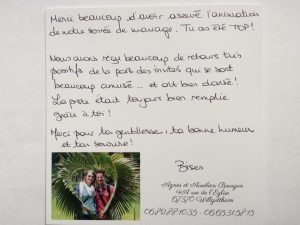 Merci beaucoup d'avoir assuré l'animation
de notre soirée de mariage. Tu as été TOP!
Nous avons reçu beaucoup de retours très
positifs de la part des invités qui se sont
beaucoup amusé... et ont bien dansé!
La piste était toujours bien remplie
grâce à toi!
Merci pour ta gentillesse, ta bonne humeur
et ton sourire!
Bises
Agnès et Aurélien
4A rue de l'Eglise
67370 Willgottheim